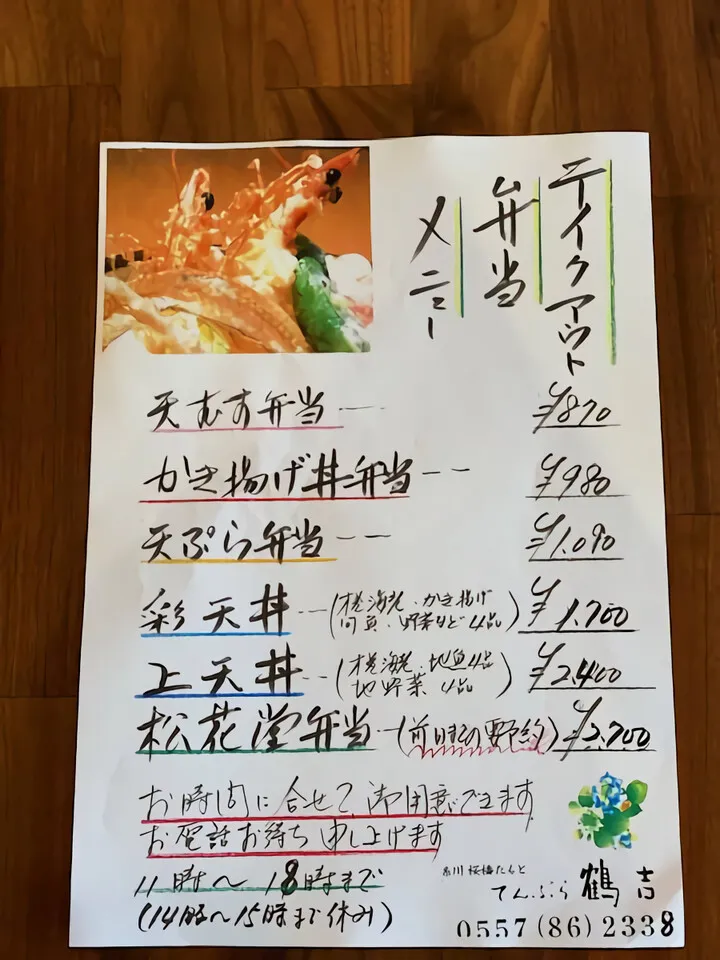 テイクアウト
弁当
メニュー
天むす弁当 ---- ¥870
かき揚げ丼弁当 -- ¥980
天ぷら弁当 -- ¥1.090
彩天丼 --- (才巻海老・かき揚げ
白身・野菜など4品) ¥1.700
上天丼 -- (才巻海老・地魚4品
地野菜 4品) ¥2.400
松花堂弁当 -- (前日迄の予約) ¥2.700
お時間に合せて御用意できます
お電話お待ち申し上げます
11時〜18時まで
(14時〜15時まで休み)
桜橋たもと
てんぷら 鶴吉
0557(86)2338